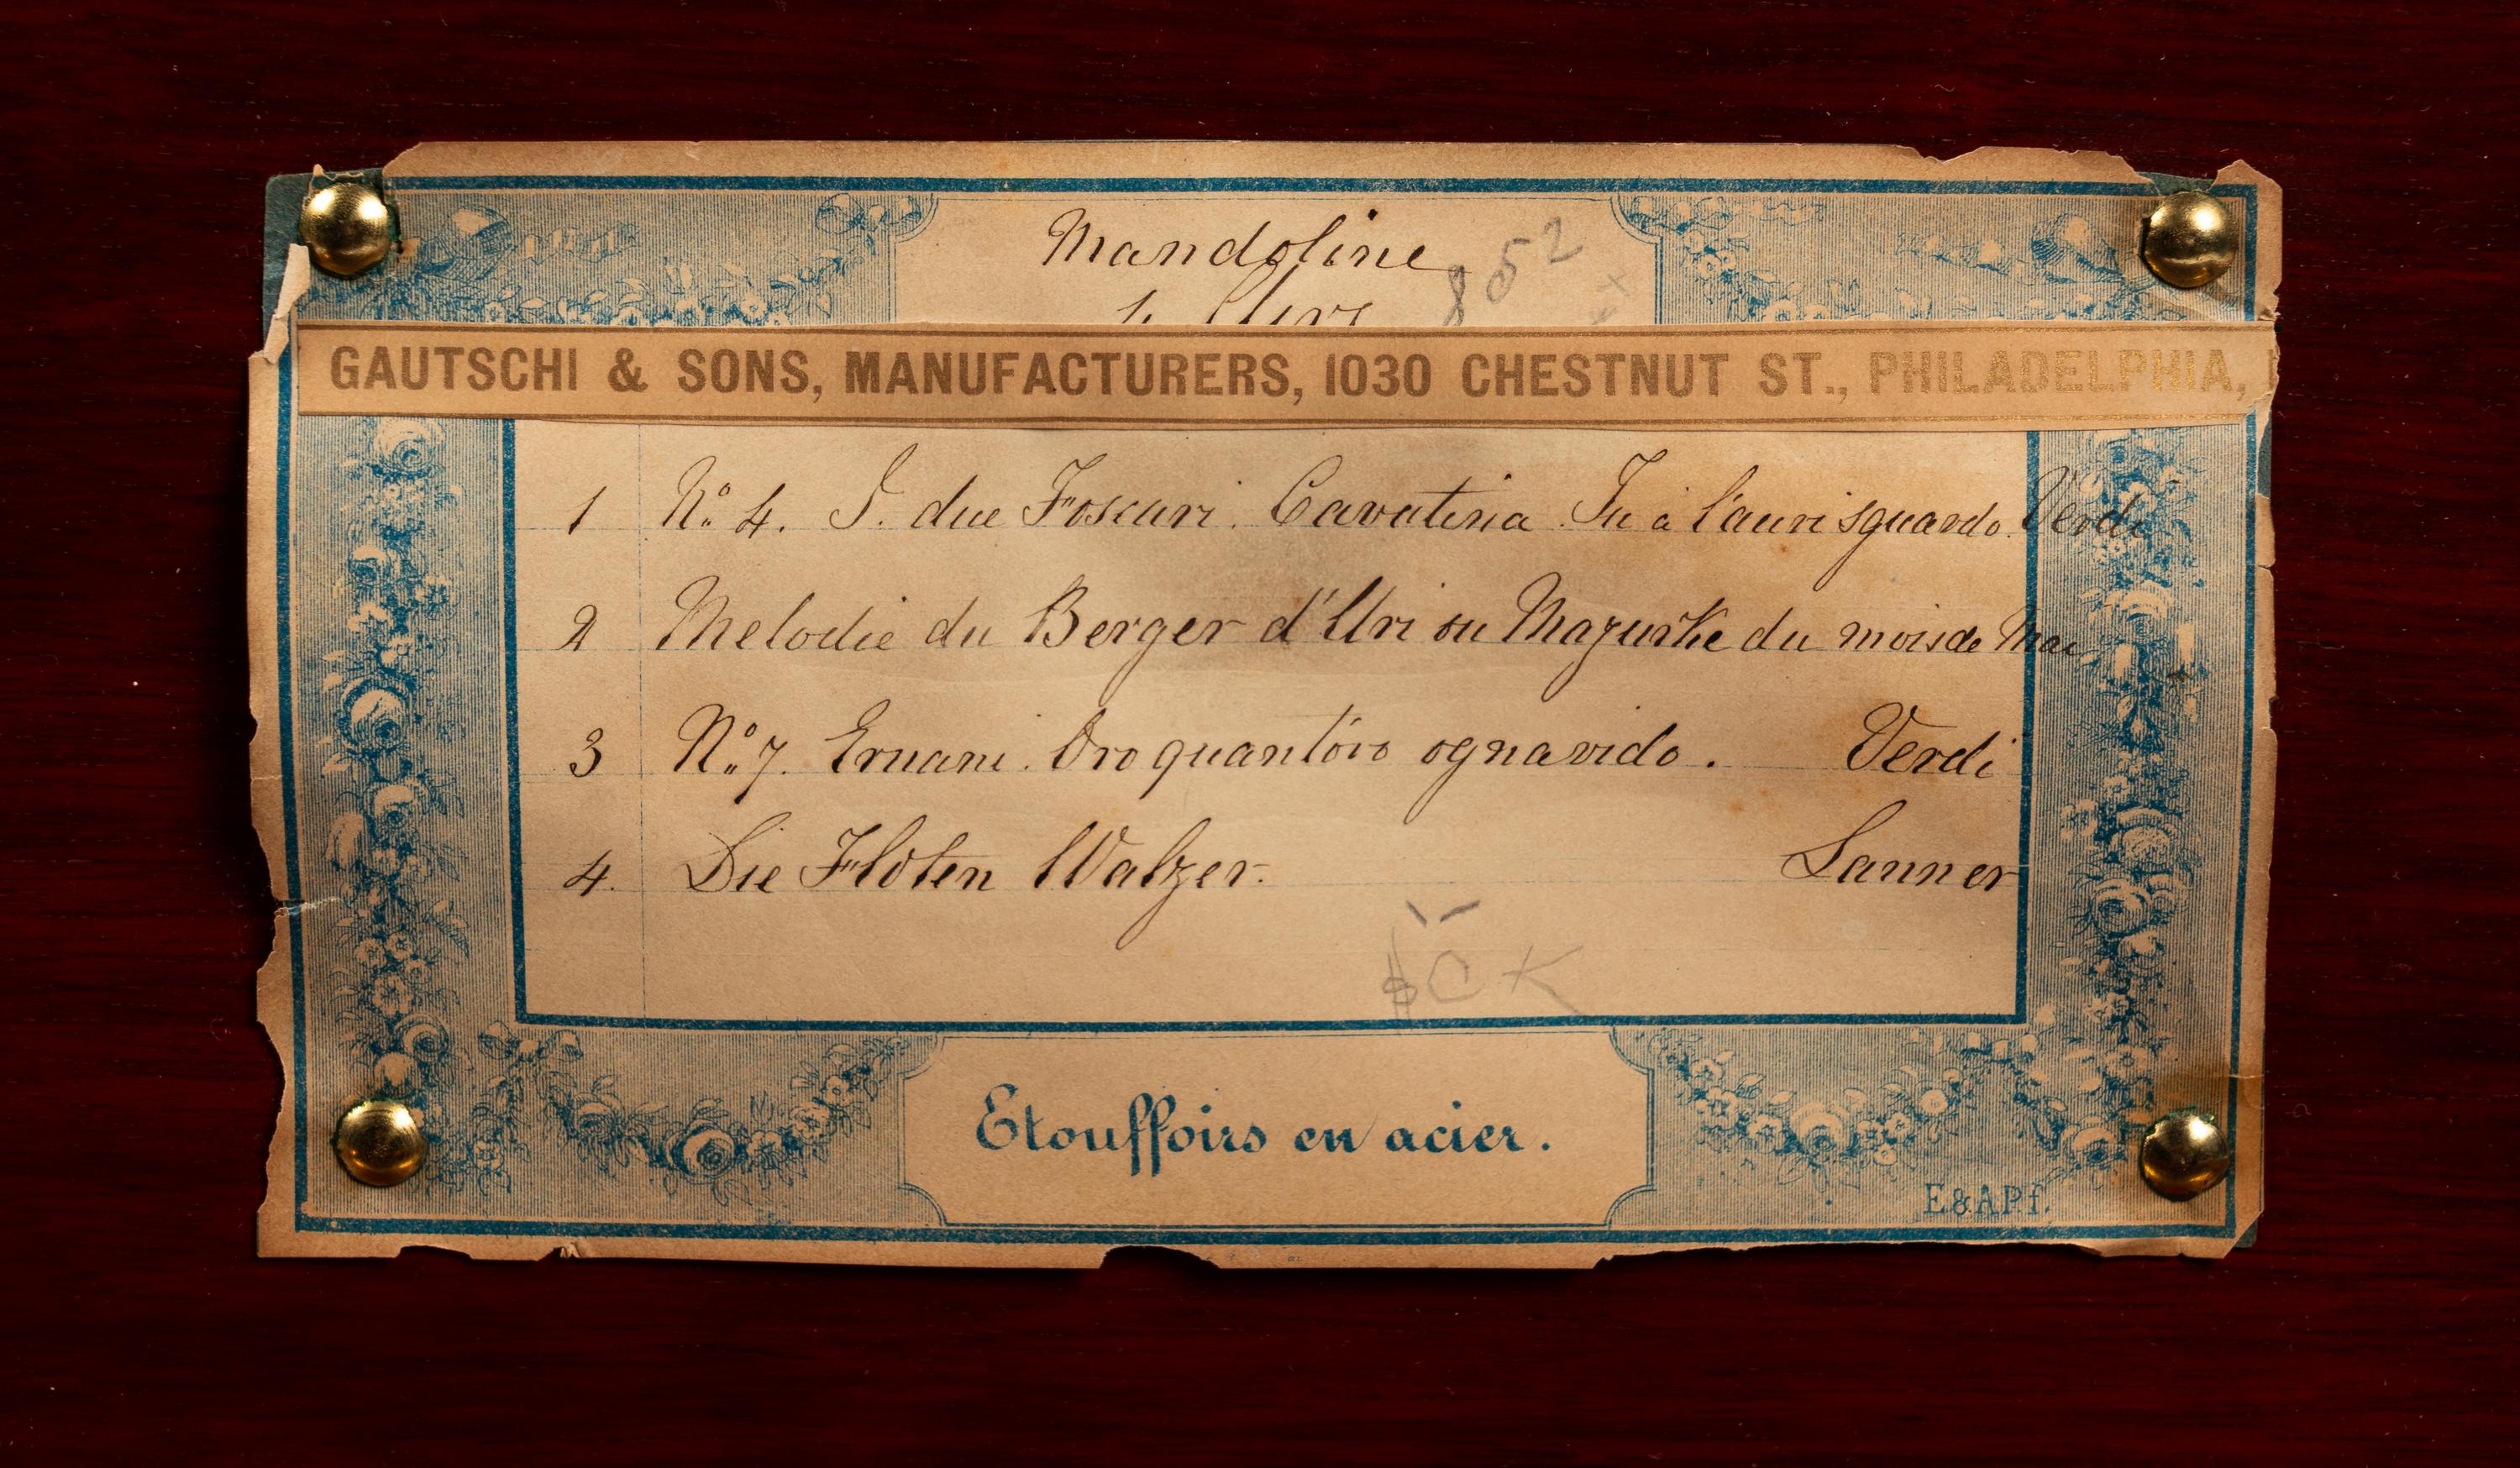 Mandoline
852
4 Airs
GAUTSCHI & SONS, MANUFACTURERS, 1030 CHESTNUT ST., PHILADELPHIA,
1 No. 4. I. due Foscari. Cavatina Tu a l'auri sguardo. Verdi
2 Melodie du Berger d'Uri ou Mazurke du mois de Mai
3 No. 7. Ernani. Oro quant'oro ognavido. Verdi
4. Die Flöten Walzer. Lanner
Etouffoirs en acier.
E&APf.